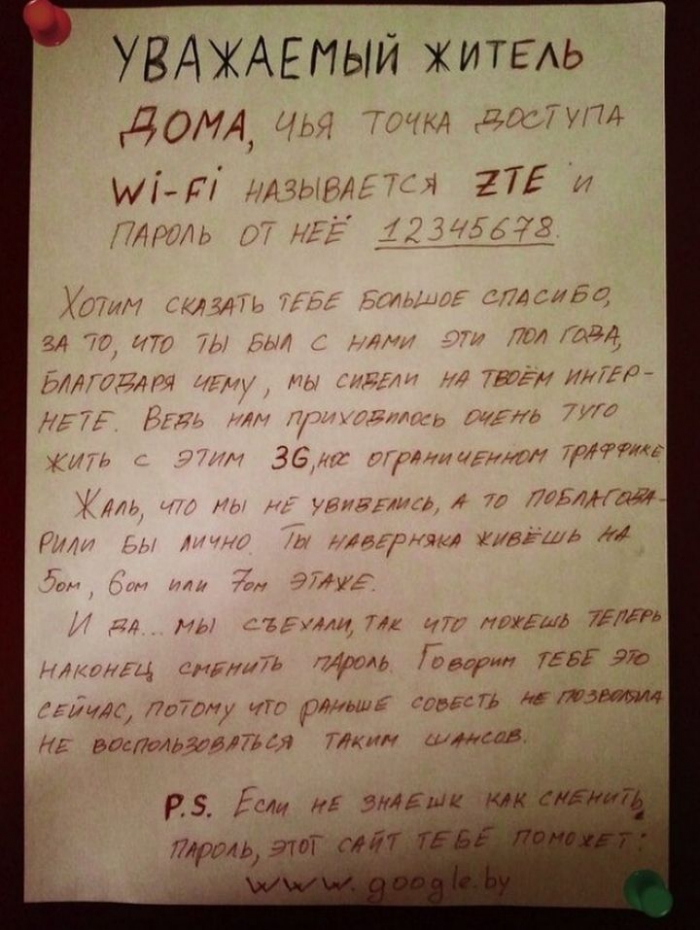 УВАЖАЕМЫЙ ЖИТЕЛЬ
ДОМА, ЧЬЯ ТОЧКА ДОСТУПА
Wi-Fi НАЗЫВАЕТСЯ ZTE И
ПАРОЛЬ ОТ НЕЁ 12345678.
ХОТИМ СКАЗАТЬ ТЕБЕ БОЛЬШОЕ СПАСИБО,
ЗА ТО, ЧТО ТЫ БЫЛ С НАМИ ЭТИ ПОЛ ГОДА,
БЛАГОДАРЯ ЧЕМУ, МЫ СИДЕЛИ НА ТВОЁМ ИНТЕР-
НЕТЕ. ВЕДЬ НАМ ПРИХОДИЛОСЬ ОЧЕНЬ ТУГО
ЖИТЬ С ЭТИМ 3G, ОГРАНИЧЕННОМ ТРАФФИКЕ
ЖАЛЬ, ЧТО МЫ НЕ УВИДЕЛИСЬ, А ТО ПОБЛАГОДА-
РИЛИ БЫ ЛИЧНО. ТЫ НАВЕРНЯКА ЖИВЁШЬ НА
5ом, 6ом или 7ом ЭТАЖЕ.
И ДА... МЫ СЪЕХАЛИ, ТАК ЧТО МОЖЕШЬ ТЕПЕРЬ
НАКОНЕЦ СМЕНИТЬ ПАРОЛЬ. ГОВОРИМ ТЕБЕ ЭТО
СЕЙЧАС, ПОТОМУ ЧТО РАНЬШЕ СОВЕСТЬ НЕ ПОЗВОЛЯЛА
НЕ ВОСПОЛЬЗОВАТЬСЯ ТАКИМ ШАНСОВ.
P.S. ЕСЛИ НЕ ЗНАЕШК КАК СМЕНИТЬ
ПАРОЛЬ, ЭТОТ САЙТ ТЕБЕ ПОМОЖЕТ:
www.google.by